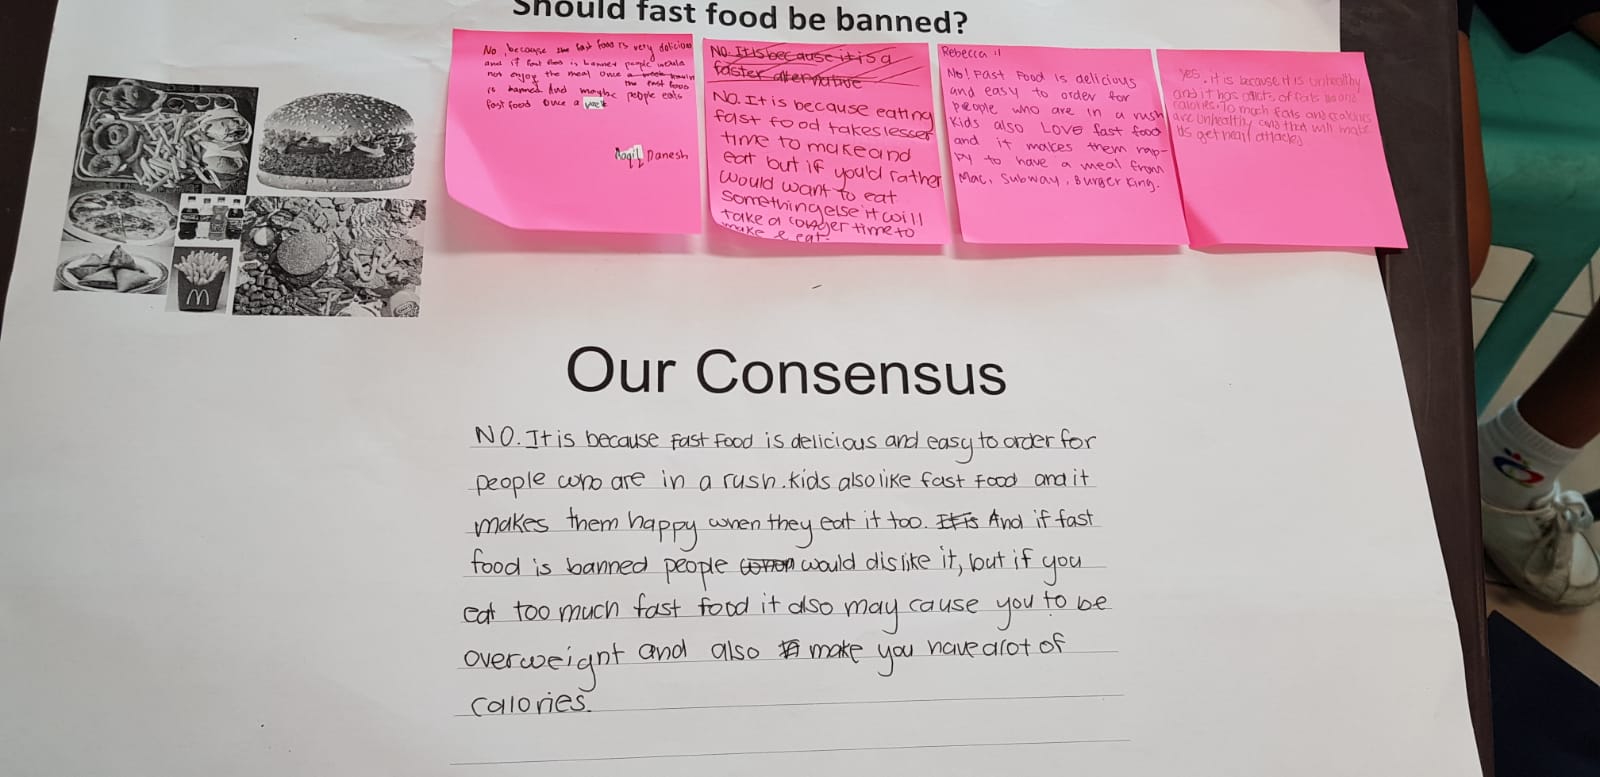 Should fast food be banned?
No, because the fast food is very delicious
and if fast food is banned people would
not enjoy the meal once a week
the fast food
is banned. And maybe people eats
fast food once a week
Aaqil Danesh
NO. It is because it is a
faster alternative
NO. It is because eating
fast food takes lesser
time to make and
eat but if you'd rather
would want to eat
something else it will
take a longer time to
make & eat.
Rebecca
No! Fast Food is delicious
and easy to order for
people who are in a rush
Kids also LOVE fast food
and it makes them hap-
py to have a meal from
Mac, Subway, Burger King.
yes, it is because it is unhealthy
and it has of fats and
calories. To much fats and calories
are unhealthy and that will make
us get heart attacks
M
Our Consensus
NO. It is because fast food is delicious and easy to order for
people who are in a rush. kids also like fast food and it
makes them happy when they eat it too. It is And if fast
food is banned people would dislike it, but if you
eat too much fast food it also may cause you to be
overweight and also make you have alot of
calories.